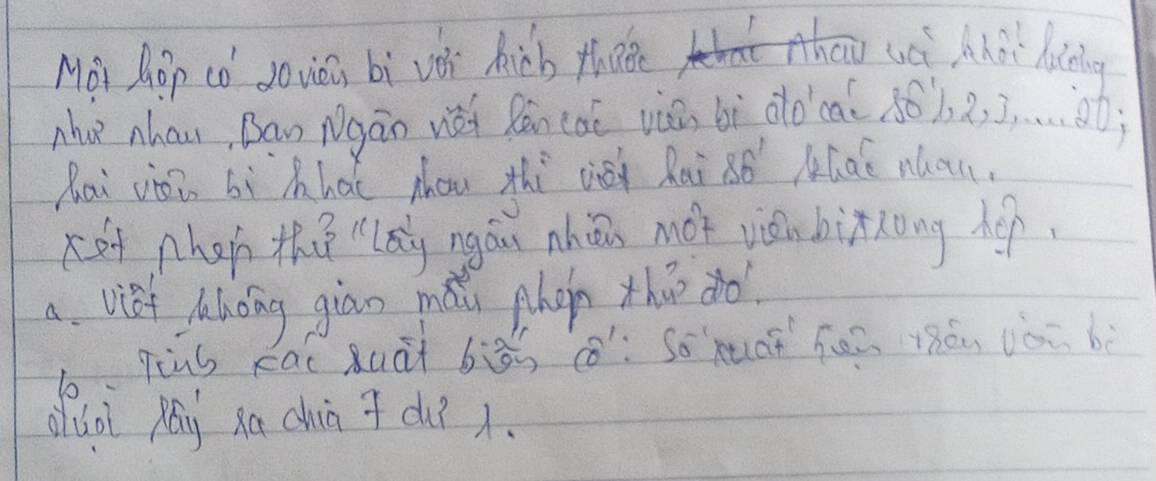 Một hộp có 20 viên bi với kích thước khác nhau và khối lượng
như nhau, Bạn Ngân viết lên các viên bi đó các số 1, 2, 3, .... 20;
hai viên bi khác nhau thì viết hai số khác nhau.
Xét phép thử "Lấy ngẫu nhiên một viên bi trong hộp.
a. Viết không gian mẫu phép thử đó.
b. Tính xác suất biến cố": Số xuất hiện trên viên bi
được lấy ra chia 7 dư 1.